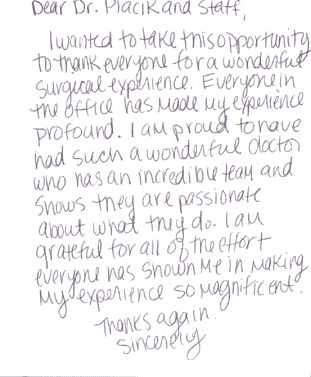 Dear Dr. Placik and Staff,
I wanted to take this opportunity
to thank everyone for a wonderful
surgical experience. Everyone in
the office has made my experience
profound. I am proud to have
had such a wonderful doctor
who has an incredible team and
shows they are passionate
about what they do. I am
grateful for all of the effort
everyone has shown me in making
my experience so magnificent.
Thanks again.
Sincerely